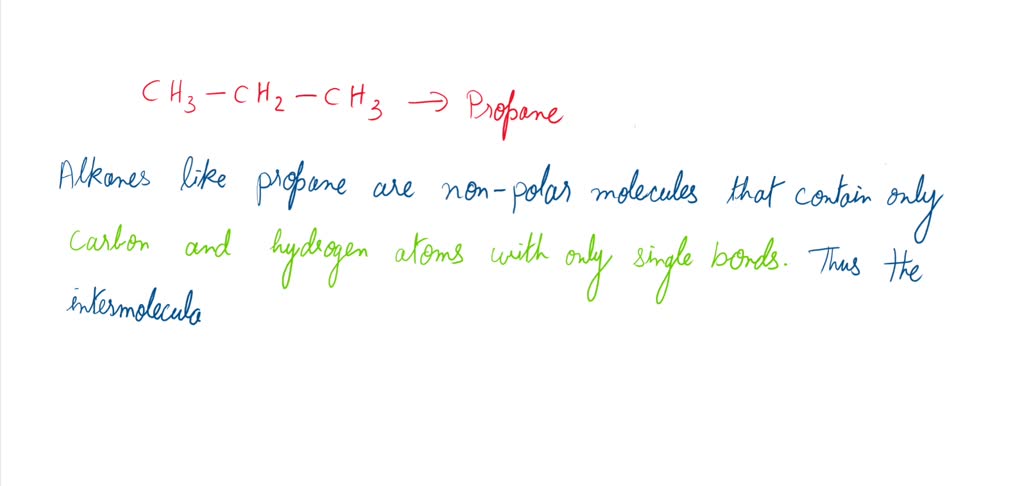 CH₃-CH₂-CH₃ → Propane
Alkanes like propane are non-polar molecules that contain only
carbon and hydrogen atoms with only single bonds. Thus the
intermolecula